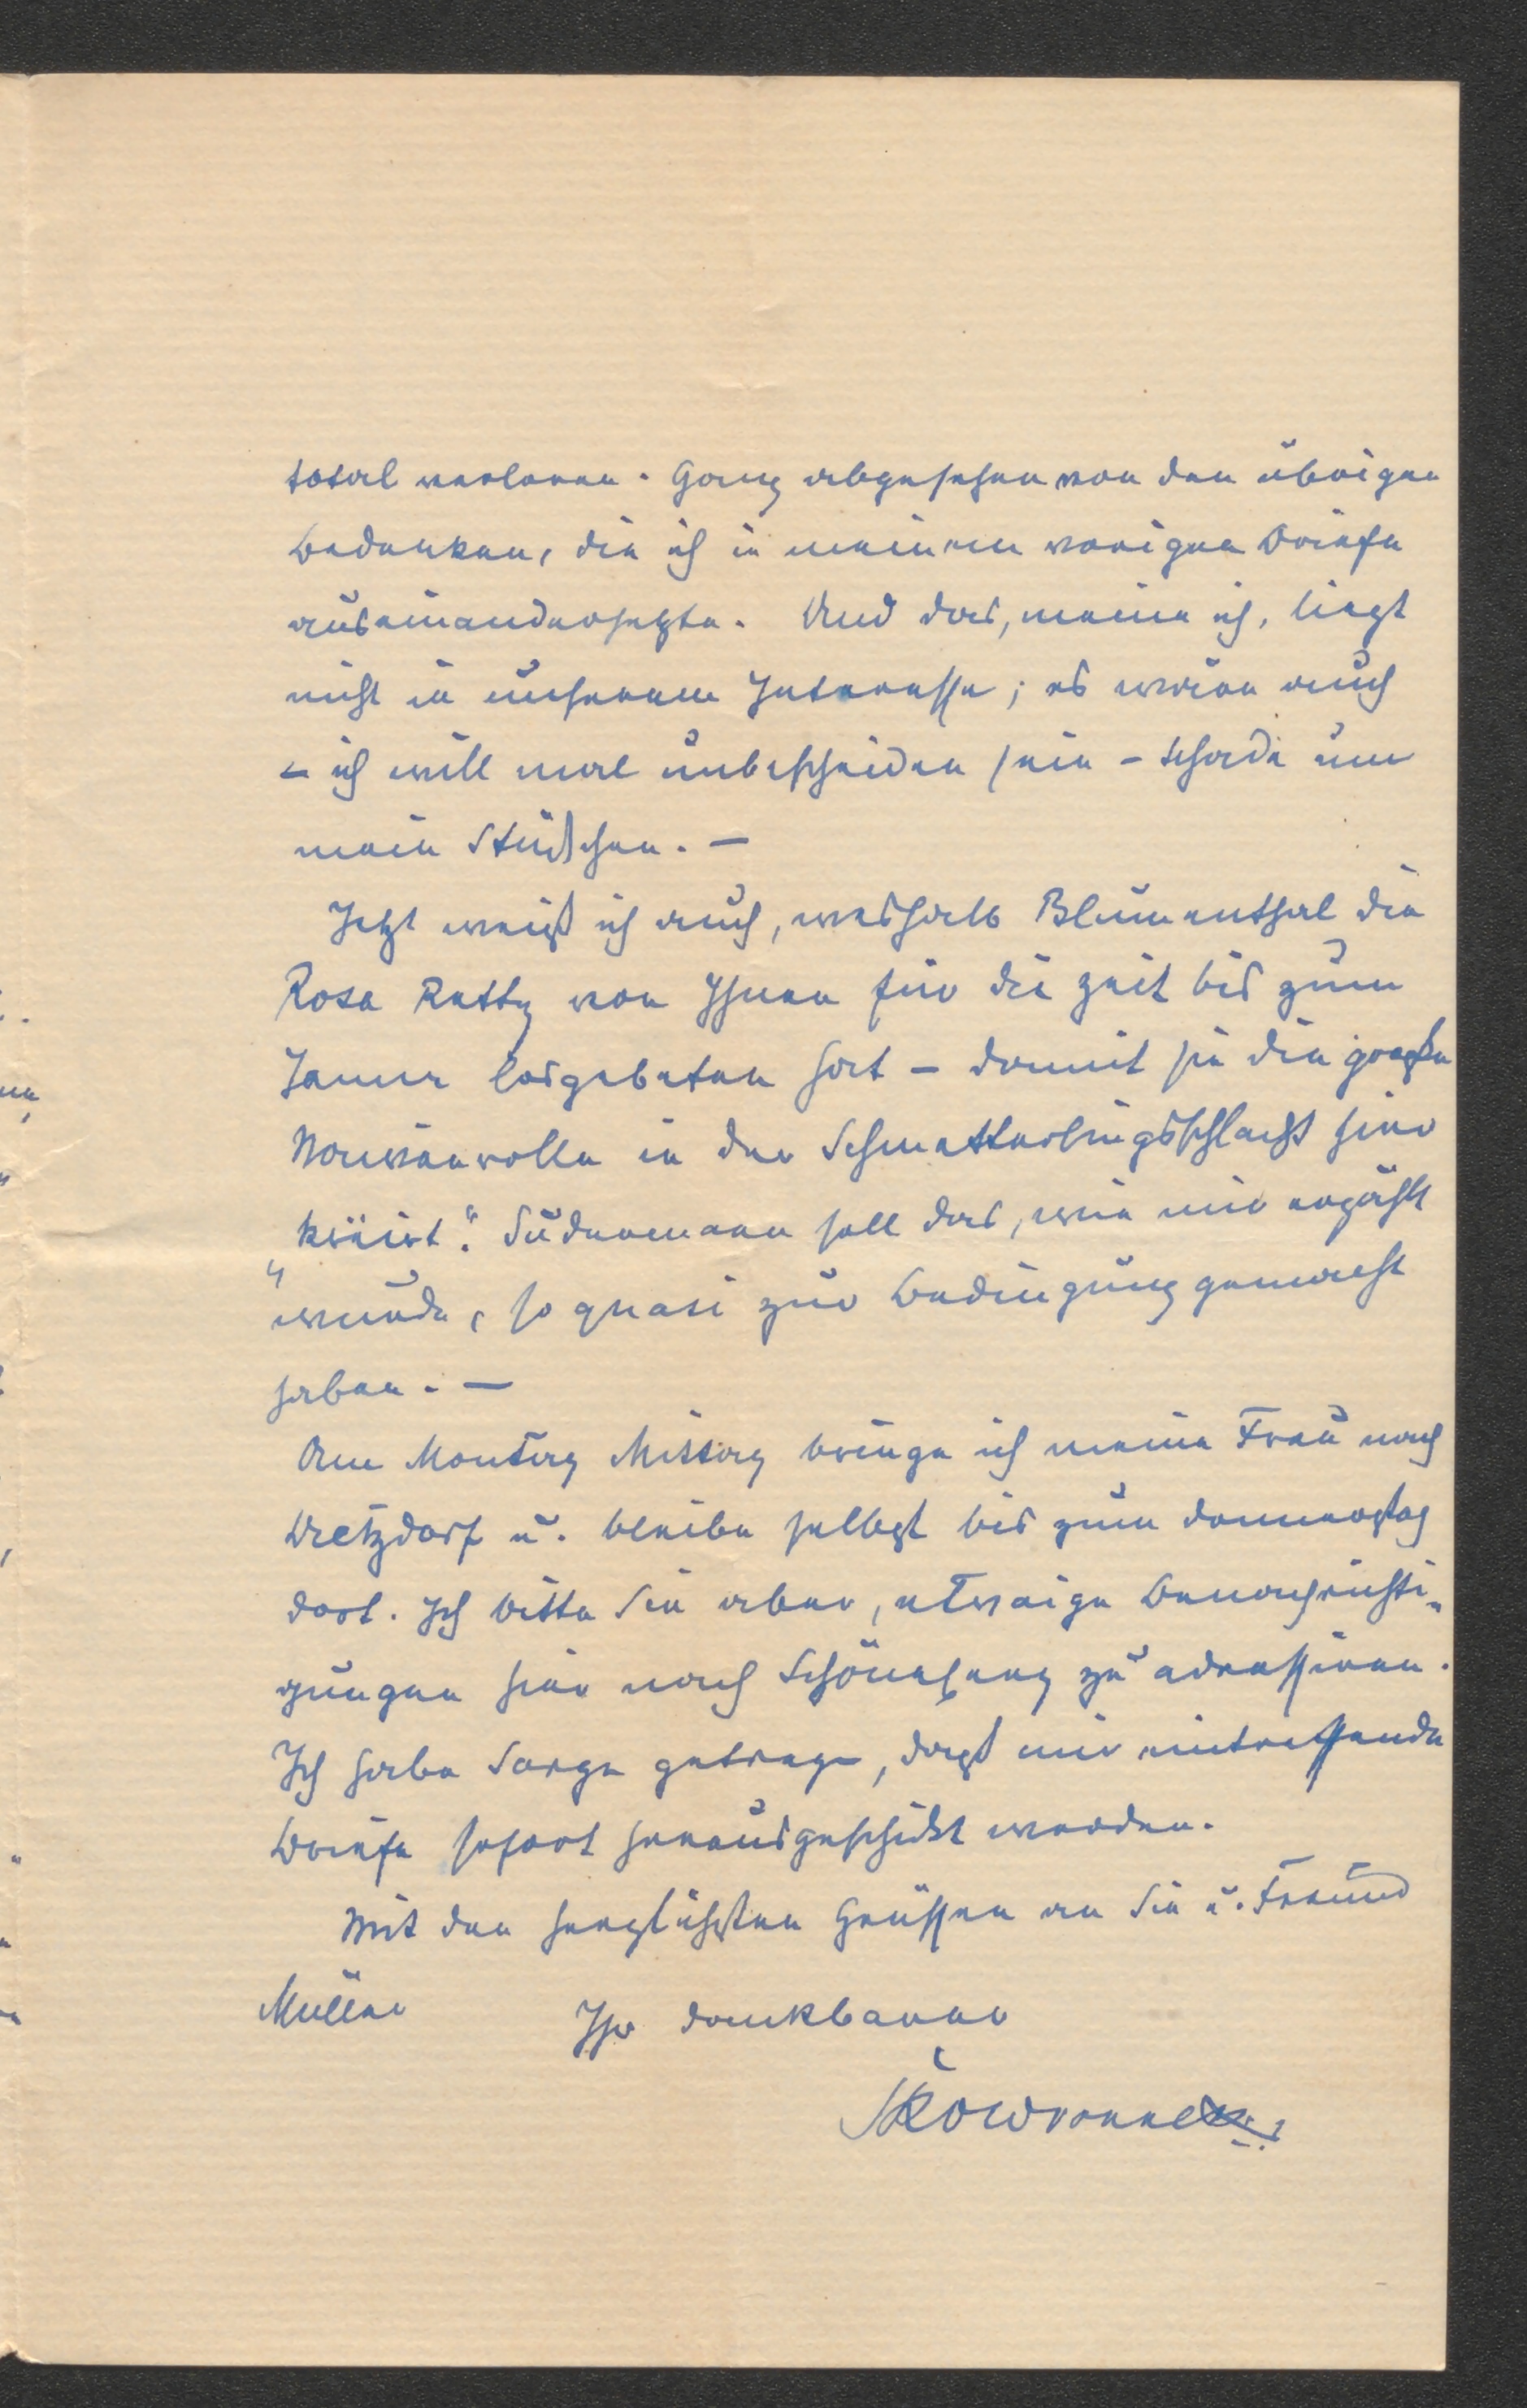 total verloren. Ganz abgesehen von den übrigen
Bedenken, die ich in meinem vorigen Briefe
auseinandersetzte. Und das, meine ich, liegt
nicht in unserem Interesse; es wäre auch
– ich will mal unbescheiden sein – schade um
mein Stückchen. –
Jetzt weiß ich auch, weshalb Blumenthal die
Rosa Retty von Ihnen für die Zeit bis zum
Januar losgebeten hat – damit sie die große
Naivenrolle in der Schmetterlingsschlacht hier
„kreirt“. Sudermann soll das, wie mir erzählt
wurde, so quasi zur Bedingung gemacht
haben. –
Am Montag Mittag bringe ich meine Frau nach
Wetzdorf u. bleibe selbst bis zum Donnerstag
dort. Ich bitte Sie aber, etwaige Benachrichti-
gungen hier nach Schöneberg zu adressiren.
Ich habe Sorge getragen, daß mir eintreffende
Briefe sofort herausgeschickt werden.
Mit den herzlichsten Grüssen an Sie u. Freund
Müller Ihr dankbarer
Skowronnek